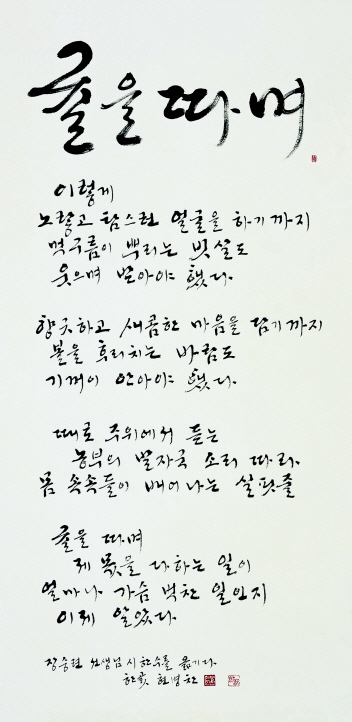 귤을 따며
이렇게
노랗고 탐스런 얼굴을 하기까지
먹구름이 뿌리는 빗살도
웃으며 받아야 했다.
향긋하고 새콤한 마음을 담기까지
볼을 후리치는 바람도
기꺼이 안아야 했다.
때로 주위에서 듣는
농부의 발자국 소리 따라
몸 속속들이 배어나는 실핏줄
귤을 따며
제 몫을 다하는 일이
얼마나 가슴 벅찬 일인지
이제 알았다.
장승련 선생님 시 한수를 옮기다
현병찬